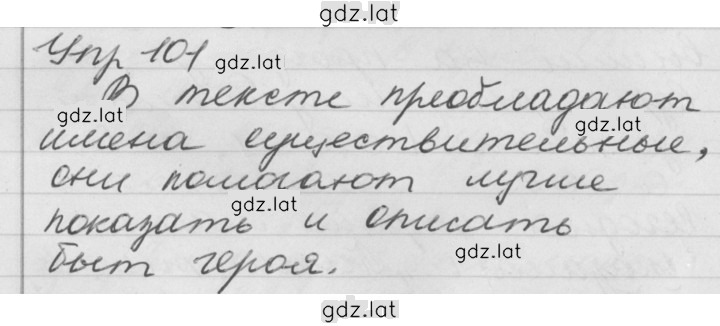 gdz.lat
Упр 101
gdz.lat
В тексте преобладают
gdz.lat
имена существительные,
gdz.lat
они помогают лучше
gdz.lat
показать и описать
gdz.lat
быт героя.
gdz.lat